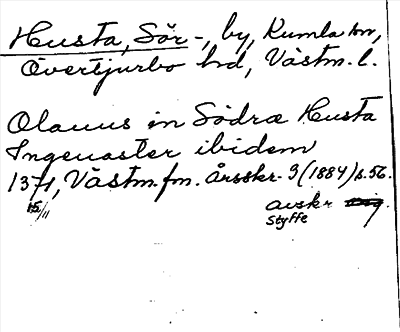 Husta, Sör-, by, Kumla sn,
Övertjurbo hd, Västm. l.
Olauus in Södræ Husta
Ingeuaster ibidem
1371, Västm. fm. årsskr. 3 (1884) s. 56.
15/11
avskr
Styffe